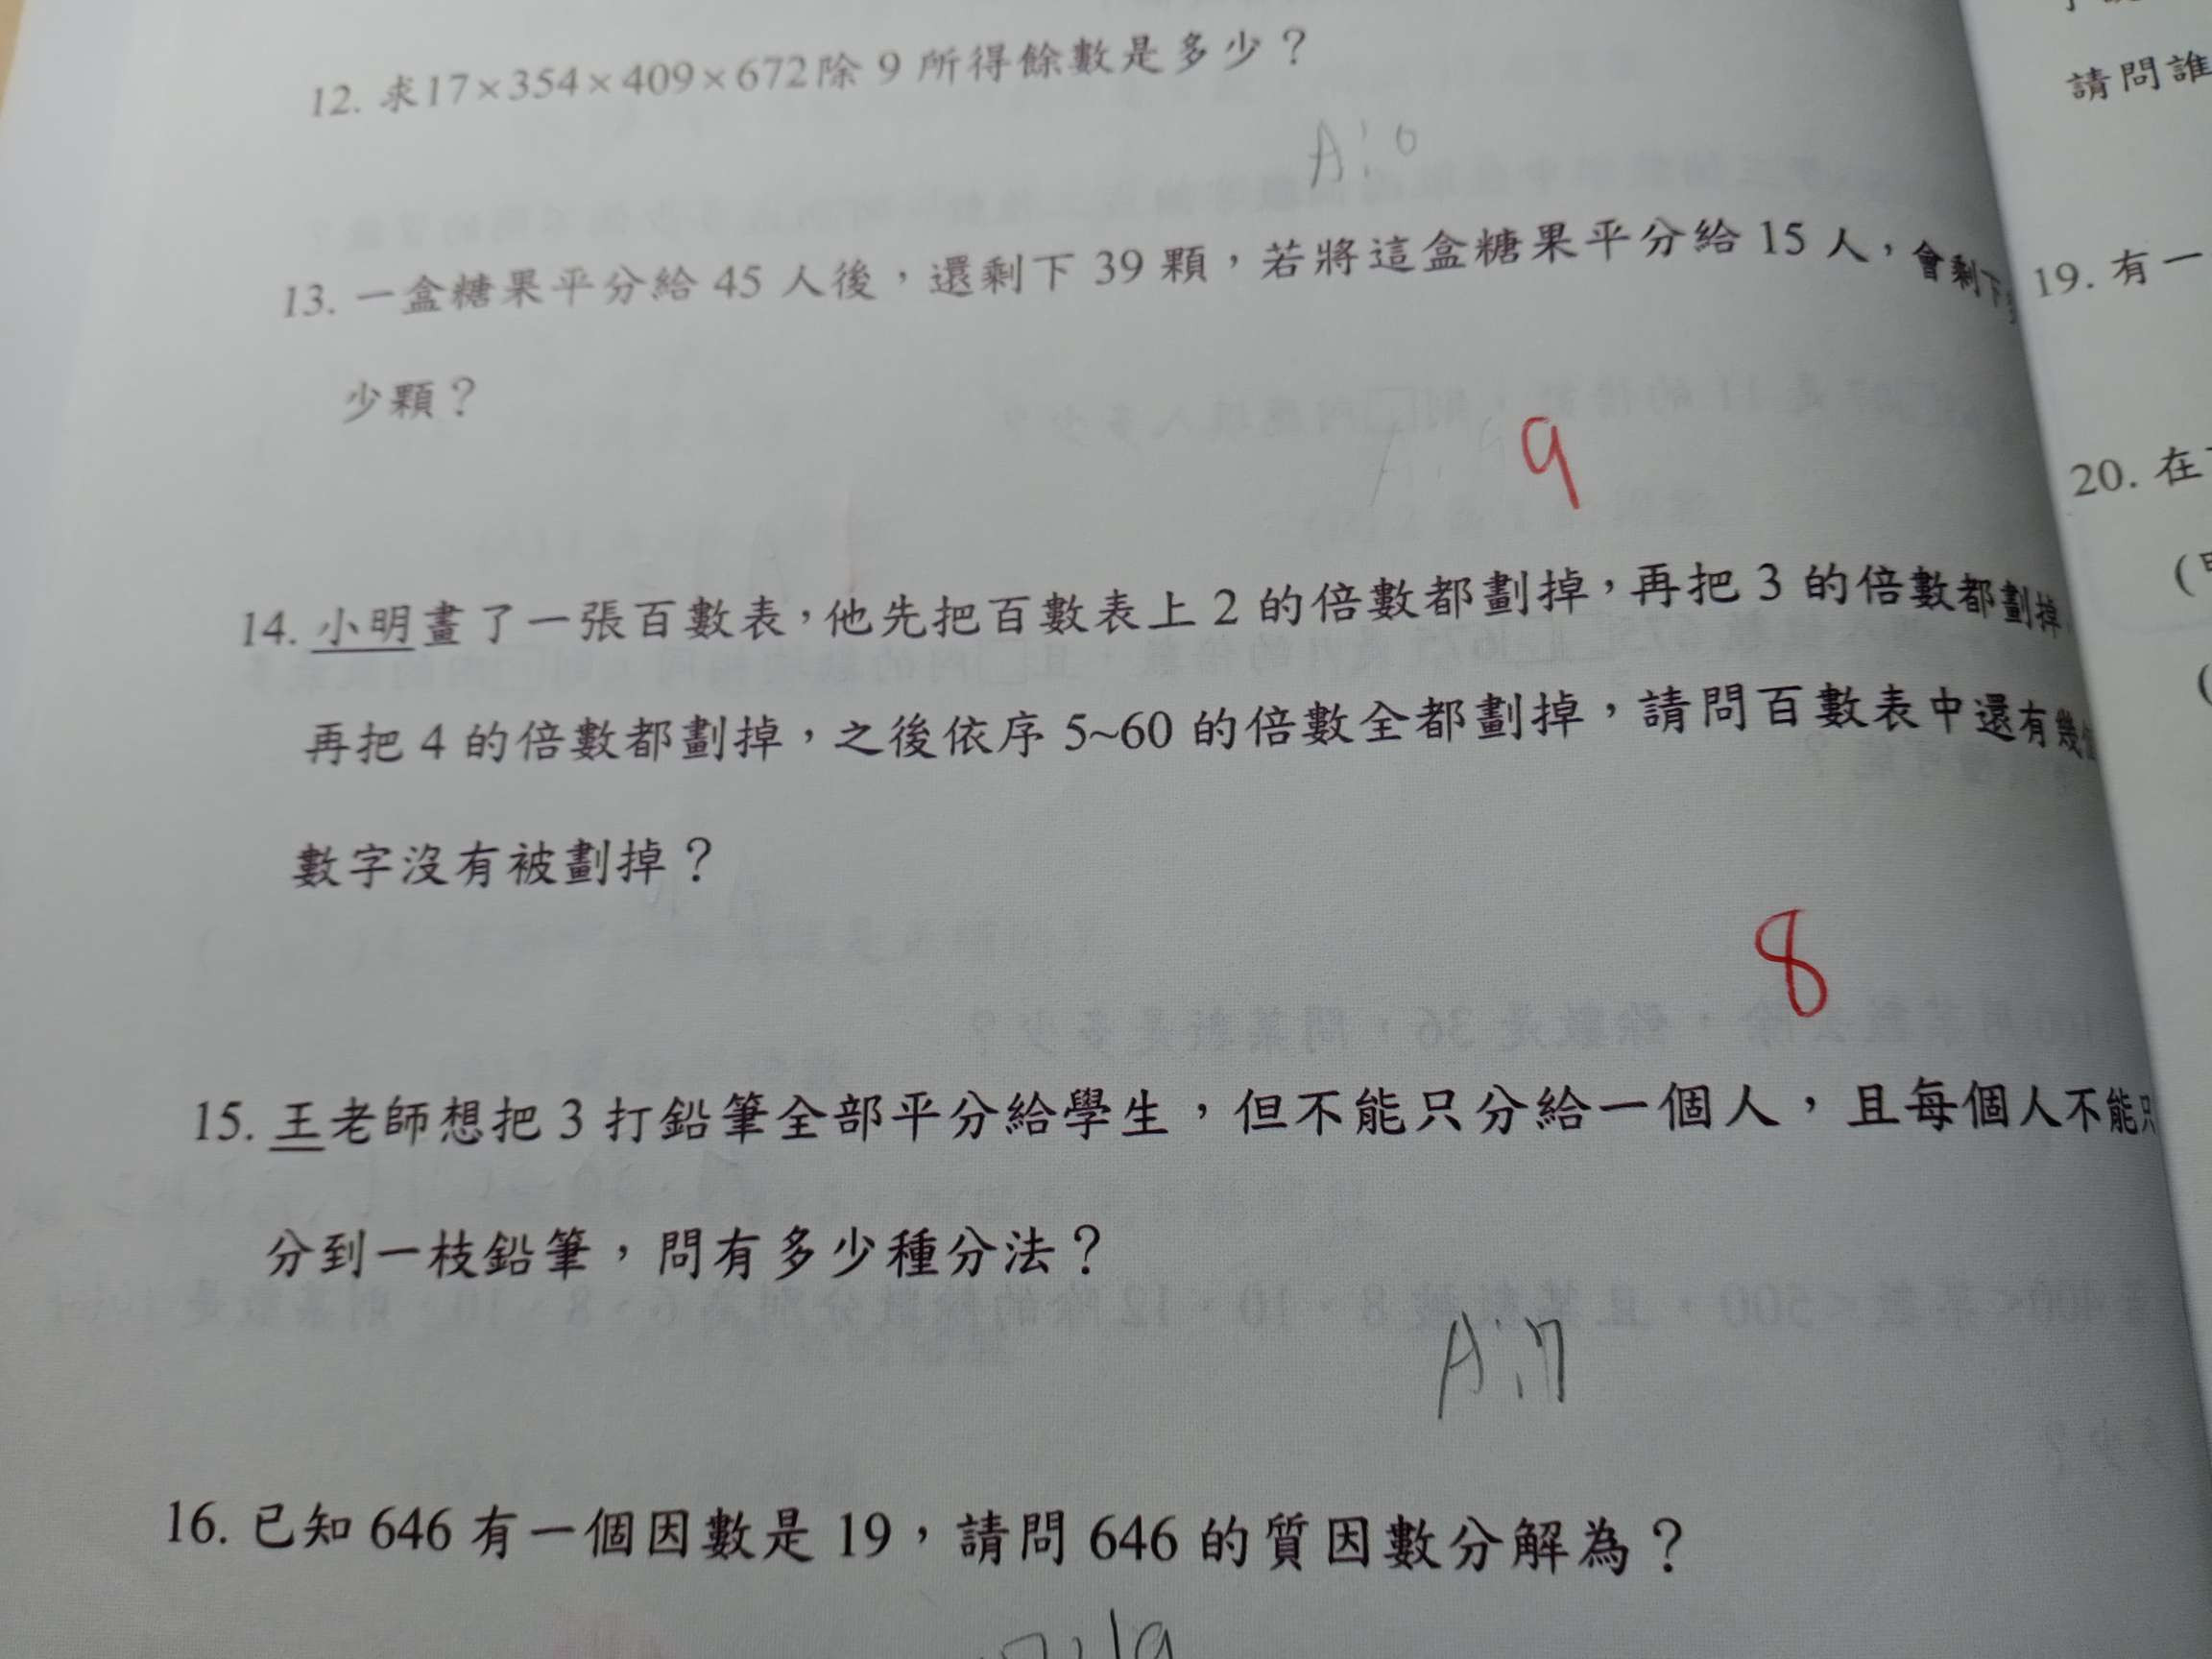 12. 求17×354×409×672除 9 所得餘數是多少？
A:0
13. 一盒糖果平分給 45 人後，還剩下 39 顆，若將這盒糖果平分給 15 人，會剩下
少顆？
9
14. 小明畫了一張百數表，他先把百數表上 2 的倍數都劃掉，再把 3 的倍數都劃掉
再把 4 的倍數都劃掉，之後依序 5~60 的倍數全都劃掉，請問百數表中還有幾個
數字沒有被劃掉？
8
15. 王老師想把 3 打鉛筆全部平分給學生，但不能只分給一個人，且每個人不能只
分到一枝鉛筆，問有多少種分法？
A:7
16. 已知 646 有一個因數是 19，請問 646 的質因數分解為？
請問誰
19. 有一
20. 在